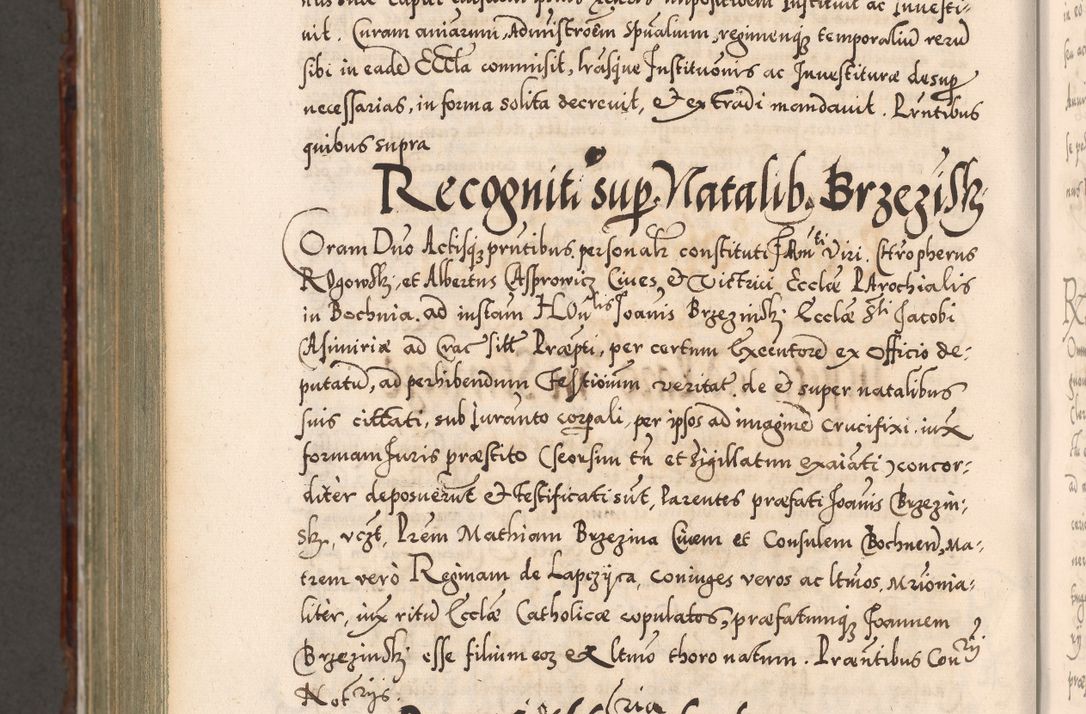 nit. Curam aniarum, Administrõem spualium, regimenq₃ temporaliũ rerũ
sibi in eadẽ Eccla commisit, lrasque Institutionis ac Inuestituræ desup
necessarias, in forma solita decreuit, & ex tradi mandauit. Pruntibus
quibus supra
Recogniti sup. Natalib. Brzeziſk.
Coram Duo Actisq₃ pruntibus personalr constituti Fam^ti Viri. Chropherus
Rogowsk, et Albertus Casprowicz Ciues & Victrici Ecclæ PArochialis
in Bochnia. ad instam HOn^lis Joanis Brzezinsk. Ecclæ Sti Jacobi
Casimiriæ ad Crac. sitt Præpti, per certum Executorẽ ex Officio de-
putatũ, ad perhibendum Testioium veritat. de & super natalibus
suis cittati, sub Juranto corpali, per ipsos ad imaginẽ Crucifixi, iux
formam Juris præstito Cseorsim tñ et sigillatim exaiati concor-
diter deposuerũt & testificati sũt, Parentes præfati Joanis Brzezin-
sk, vczt, Prem Mathiam Brzezina Ciuem et Consulem Bochnen, Ma-
trem verò Reginam de Lapczÿca, coniuges veros ac ltimos, Mrionia-
liter, iux ritũ Ecclæ Catholicæ copulatos, præfatumq₃ Joannem
Brzezinsk. esse filium eoz ex ltimo thoro natum. Præntibus Con^rij
Not^rijs.